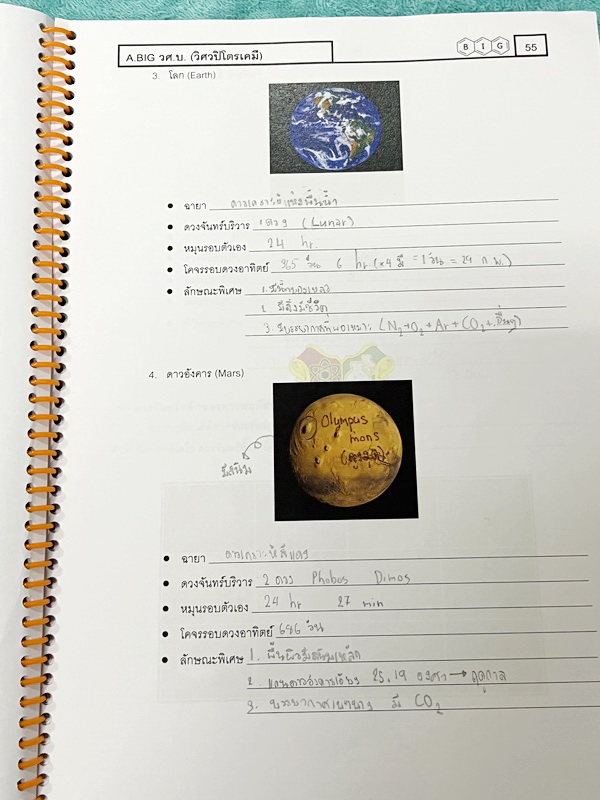 A.BIG วศ.บ. (วิศวปิโตรเคมี)
BIG
55
3. โลก (Earth)
• ฉายา ดาวเคราะห์แห่งพื้นน้ำ
• ดวงจันทร์บริวาร 1 ดวง (Lunar)
• หมุนรอบตัวเอง 24 hr.
• โคจรรอบดวงอาทิตย์ 365 วัน 6 hr. (×4 ปี = 1 วัน = 29 ก.พ.)
• ลักษณะพิเศษ 1.
2. มีสิ่งมีชีวิต
3. (N2+O2+Ar+CO2+อื่นๆ)
4. ดาวอังคาร (Mars)
Olympus
mons
(สูงสุด)
• ฉายา ดาวเคราะห์สีแดง
• ดวงจันทร์บริวาร 2 ดวง Phobos Dimos
• หมุนรอบตัวเอง 24 hr 27 min
• โคจรรอบดวงอาทิตย์ 686 วัน
• ลักษณะพิเศษ 1. พื้นผิวมีสนิมเหล็ก
2. 25.19 องศา → ฤดูกาล
3. บรรยากาศเบาบาง มี CO2